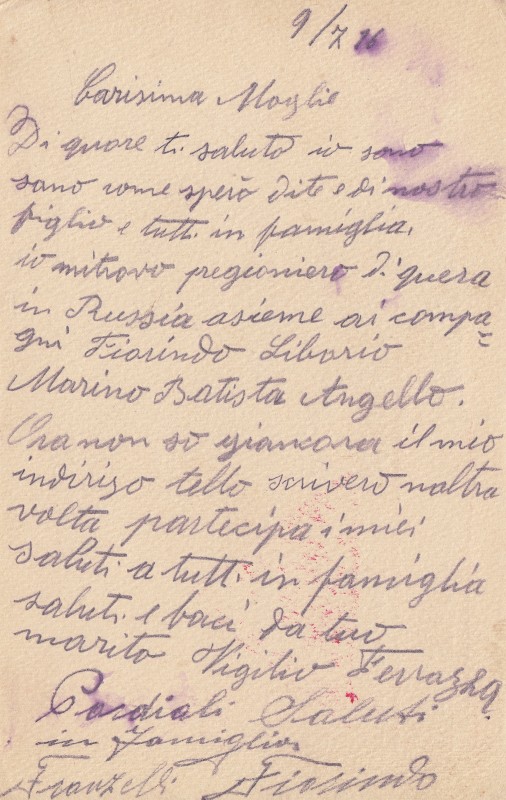 9/7 16
Carisima Moglie
Di quore ti saluto io sono
sano come sperò dite e di nostro
figlio e tutti in famiglia.
io mitrovo pregioniero di quera
in Russia asieme ai compa=
gni Fiorindo Liborio
Marino Batista Angello.
Ora non sò giancora il mio
indirizo tello scriverò naltra
volta partecipa i miei
saluti a tutti in famiglia
saluti e baci da tuo
marito Vigilio Ferrazza
Cordiali Saluti
in famiglia
Franzelli Fiorindo